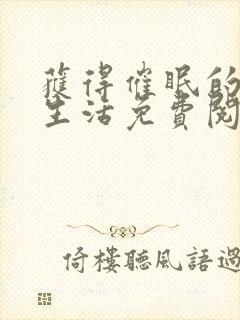 獲得催眠的
生活免費閱
倚樓聽風語過